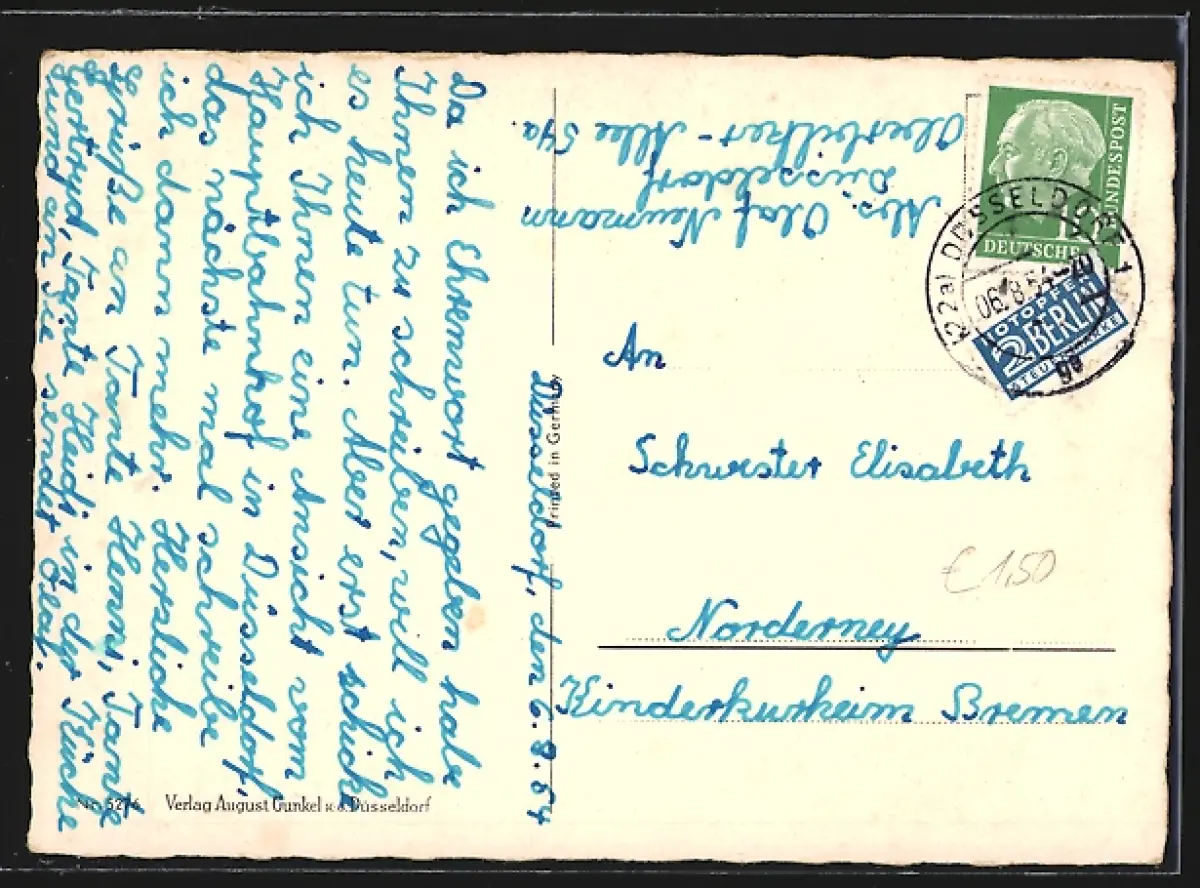 Düsseldorf, den 6. 8. 54
Da ich Ehrenwort gegeben habe
Ihnen zu schreiben, will ich
es heute tun. Aber erst schicke
ich Ihnen eine Ansicht vom
Hauptbahnhof in Düsseldorf,
das nächste mal schreibe
ich dann mehr. Herzliche
Grüße an Tante Hemmi, Tante
Gertrud, Tante Heidi, in der Küche
und an Sie sendet Olaf.
Nr. 5276 Verlag August Gunkel Düsseldorf
Printed in Germany
Abs. Olaf Neumann
Düsseldorf
Oberbilker-Allee 54a.
DEUTSCHE BUNDESPOST
10
(22a) DÜSSELDORF 1
06.8.54-20
gg
NOTOPFER
2 BERLIN
STEUERMARKE
An
Schwester Elisabeth
€ 1,50
Norderney
Kinderkurheim Bremen